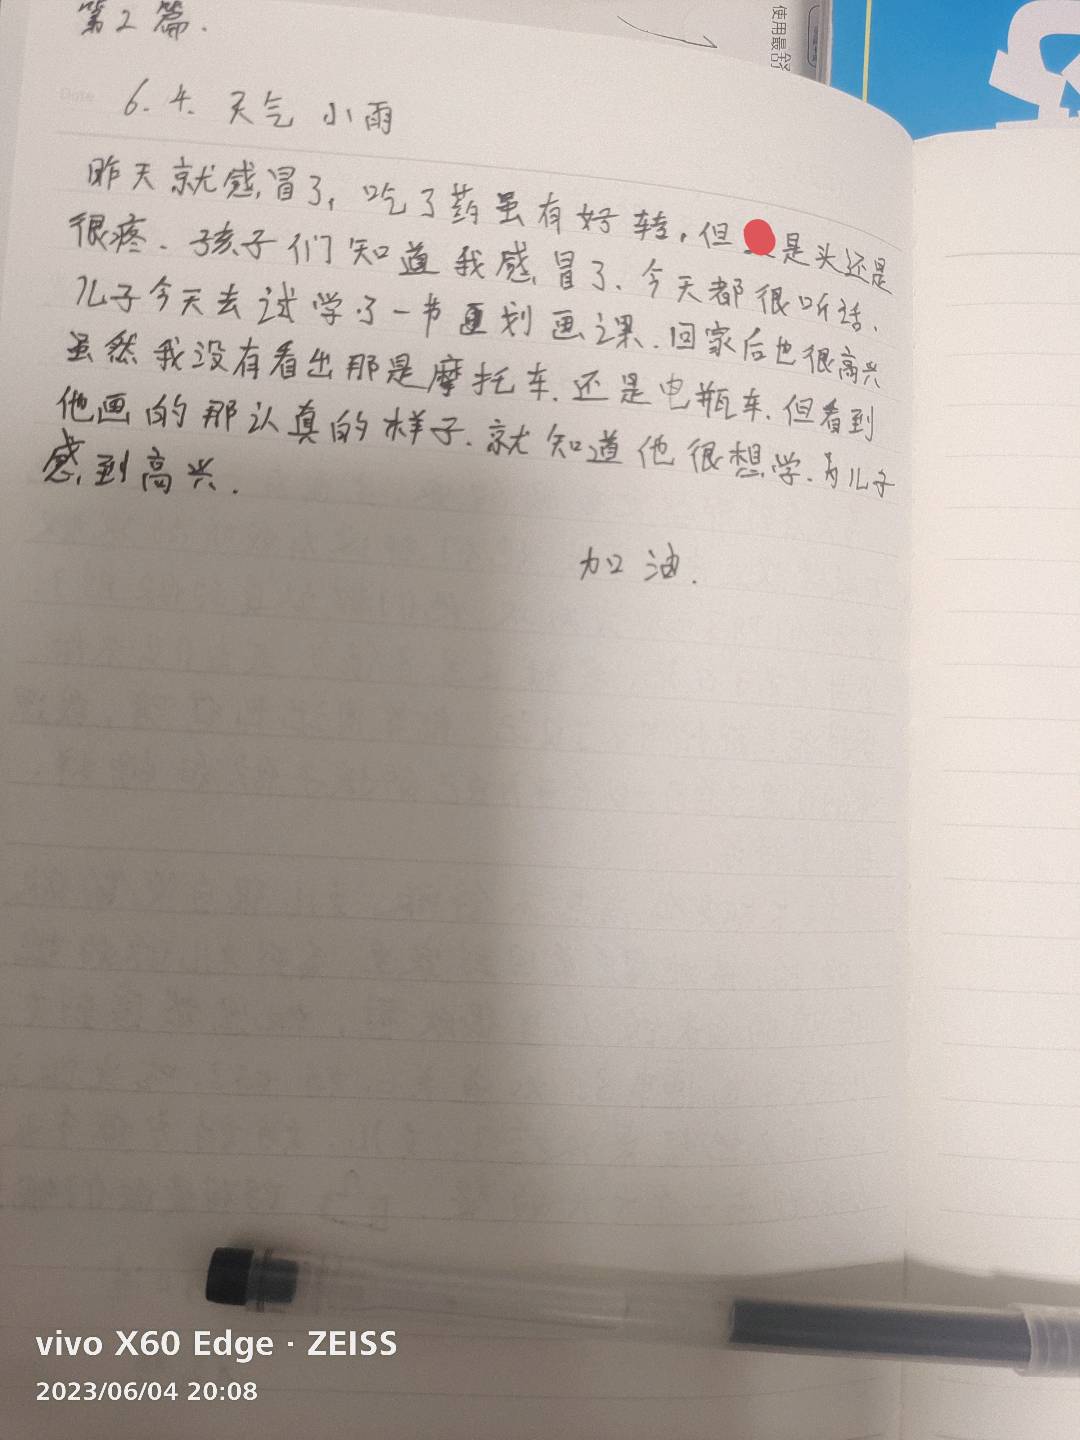 第2篇.
使用最
Date
6.4. 天气 小雨
昨天就感冒了,吃了药虽有好转,但是头还是
很疼.孩子们知道我感冒了.今天都很听话.
儿子今天去试学了一节划画课.回家后也很高兴
虽然我没有看出那是摩托车.还是电瓶车.但看到
他画的那认真的样子.就知道他很想学.为儿子
感到高兴.
加油.
vivo X60 Edge · ZEISS
2023/06/04 20:08